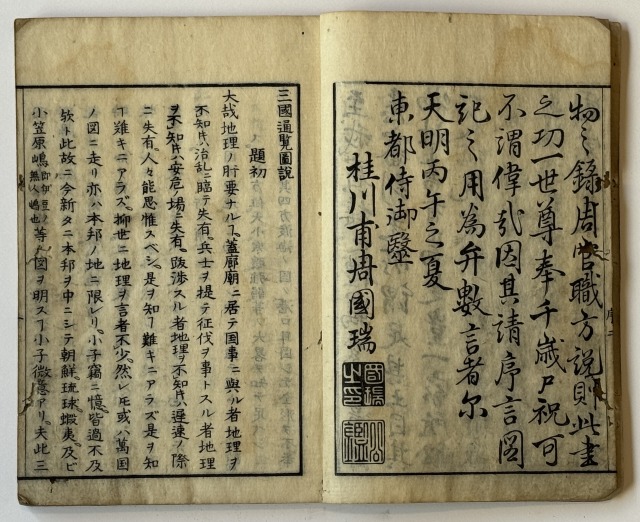 物之錄周官職方說則此書
之功一世尊奉千歲尸祝可
不謂偉哉因其請序言図
記之用為弁數言者尔
天明丙午之夏
東都侍御醫
桂川甫周國瑞
三國通覧圖説
題初
大哉地理ノ肝要ナルヿ蓋廊廟ニ居テ国事ニ與ル者地理ヲ
不知𪜈ハ治乱ニ臨テ失有。兵士ヲ提テ征伐ヲ事トスル者地理
ヲ不知𪜈ハ安危ノ場ニ失有。跋渉スル者地理ヲ不知𪜈ハ遅速ノ際
ニ失有。人々能思惟スベシ。是ヲ知ヿ難キニアラズ是ヲ知
ヿ難キニアラズ。抑世ニ地理ヲ言者不少。然レ𪜈或ハ萬国
ノ図ニ走リ亦ハ本邦ノ地ニ限レリ。小子竊ニ憶。皆過不及
欤ト此故ニ今新タニ本邦ヲ中ニシテ朝鮮。琉球。蝦夷。及ビ
小笠原嶋即伊豆ノ無人嶋也等ノ図ヲ明スヿ小子微意アリ。夫此三